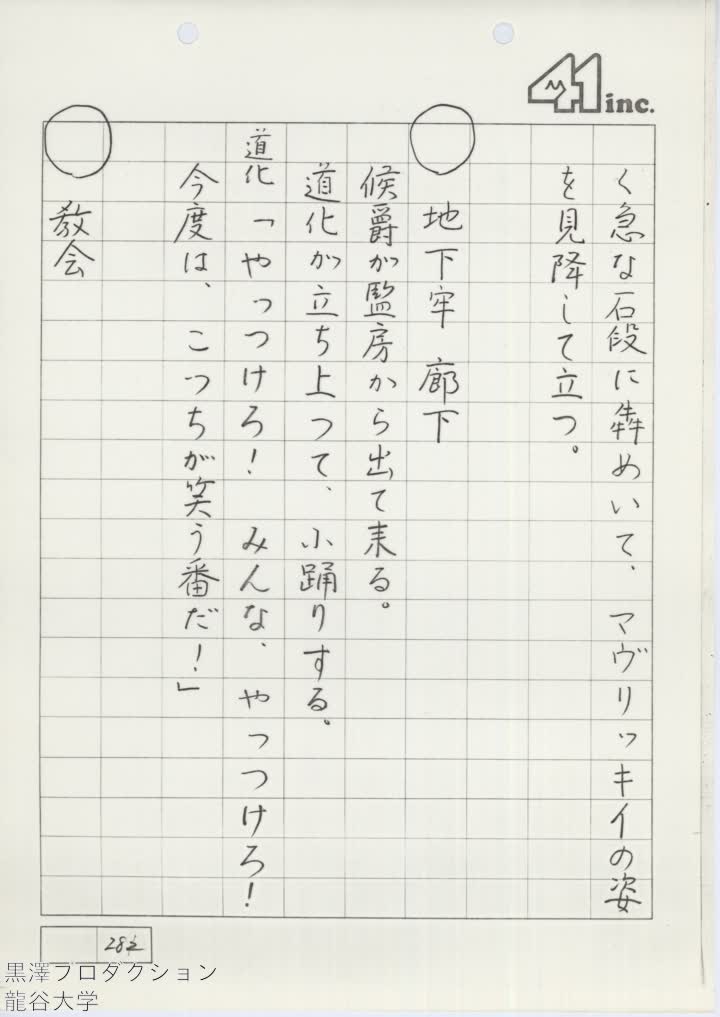 41 inc.
く急な石段に犇めいて、マヴリッキイの姿
を見降して立つ。
○ 地下牢 廊下
候爵が監房から出て来る。
道化が立ち上つて、小踊りする。
道化「やっつけろ! みんな、やっつけろ!
今度は、こっちが笑う番だ!」
○ 教会
282
黒澤プロダクション
龍谷大学